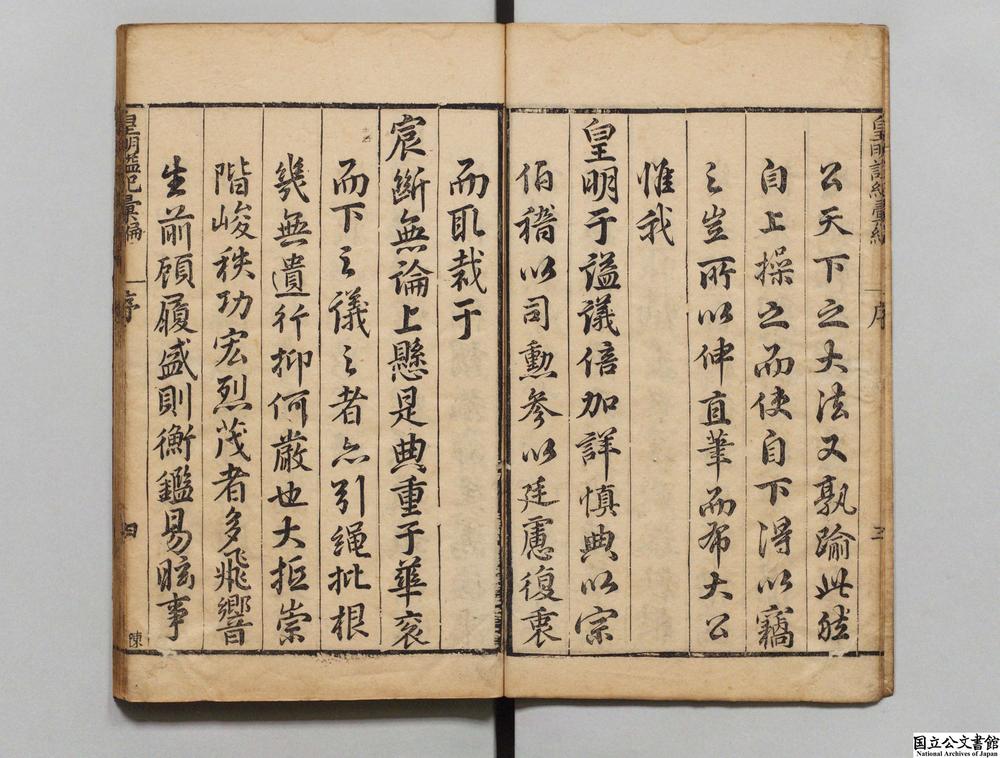 皇明謚紀彙編
序
三
公天下之大法又孰踰此然
自上操之而使自下得以竊
之豈所以伸直筆而布大公
惟我
皇明于謚議倍加詳慎典以宗
伯稽以司勳参以廷慮復裏
而取裁于
宸斷無論上懸是典重于華衮
而下之議之者亦引繩批根
幾無遺行抑何嚴也大抵崇
階峻秩功宏烈茂者多飛響
生前顧履盛則衡鑑易眩事
皇明謚紀彙編
序
四
陳
国立公文書館
National Archives of Japan